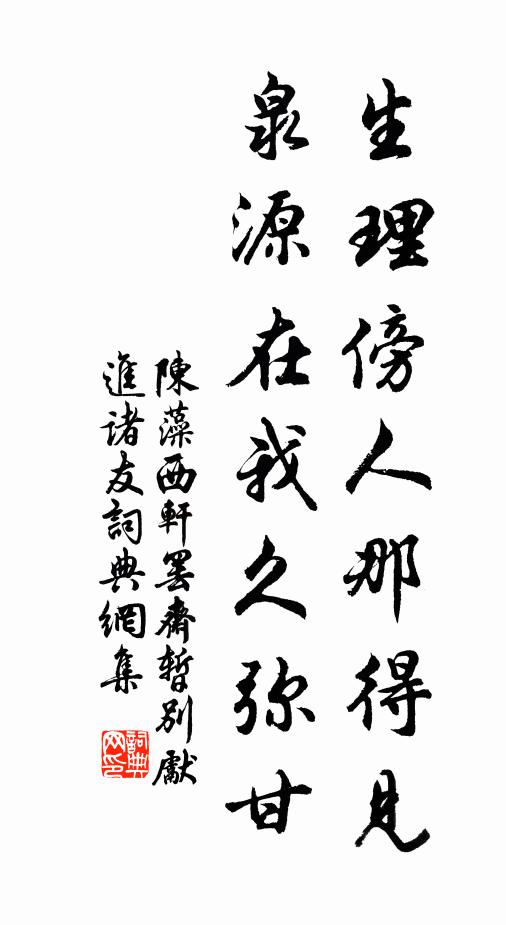 生理傍人那得見
泉源在我久弥甘
陳藻西軒罢齋暫別獻
進諸友詞典網集
詞典網印